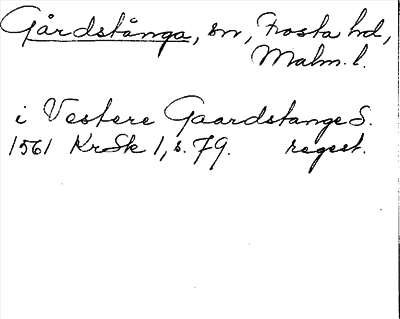 Gårdstånga, sn, Frosta hd,
Malm. l.
i Vestere Gaardstange S.
1561 KrSk 1, s. 79. regest.